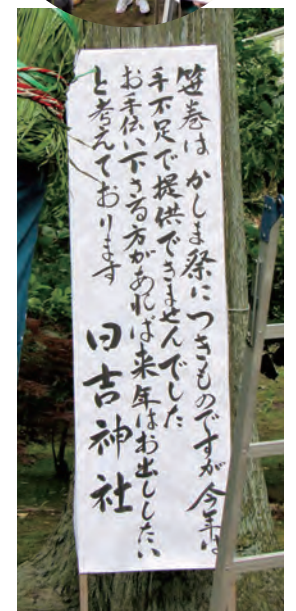 笹巻は かしま祭につきものですが 今年は
手不足で提供できませんでした
お手伝い下さる方があれば来年はお出ししたい
と考えております
日吉神社